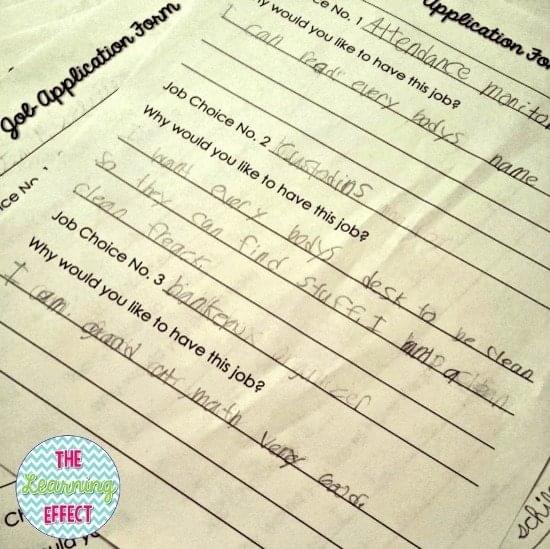 Job Application Form
Application Fo
No. 1 Attendance monitor
y would you like to have this job?
I can read every bodys name
Job Choice No. 2 Custodins
Why would you like to have this job?
I want every bodys desk to be clean
so they can find stuff. I am a clean
clean freack.
Job Choice No. 3
Why would you like to have this job?
I am good at math very good.
ice No
THE
Learning
EFFECT
Ch
uld yo